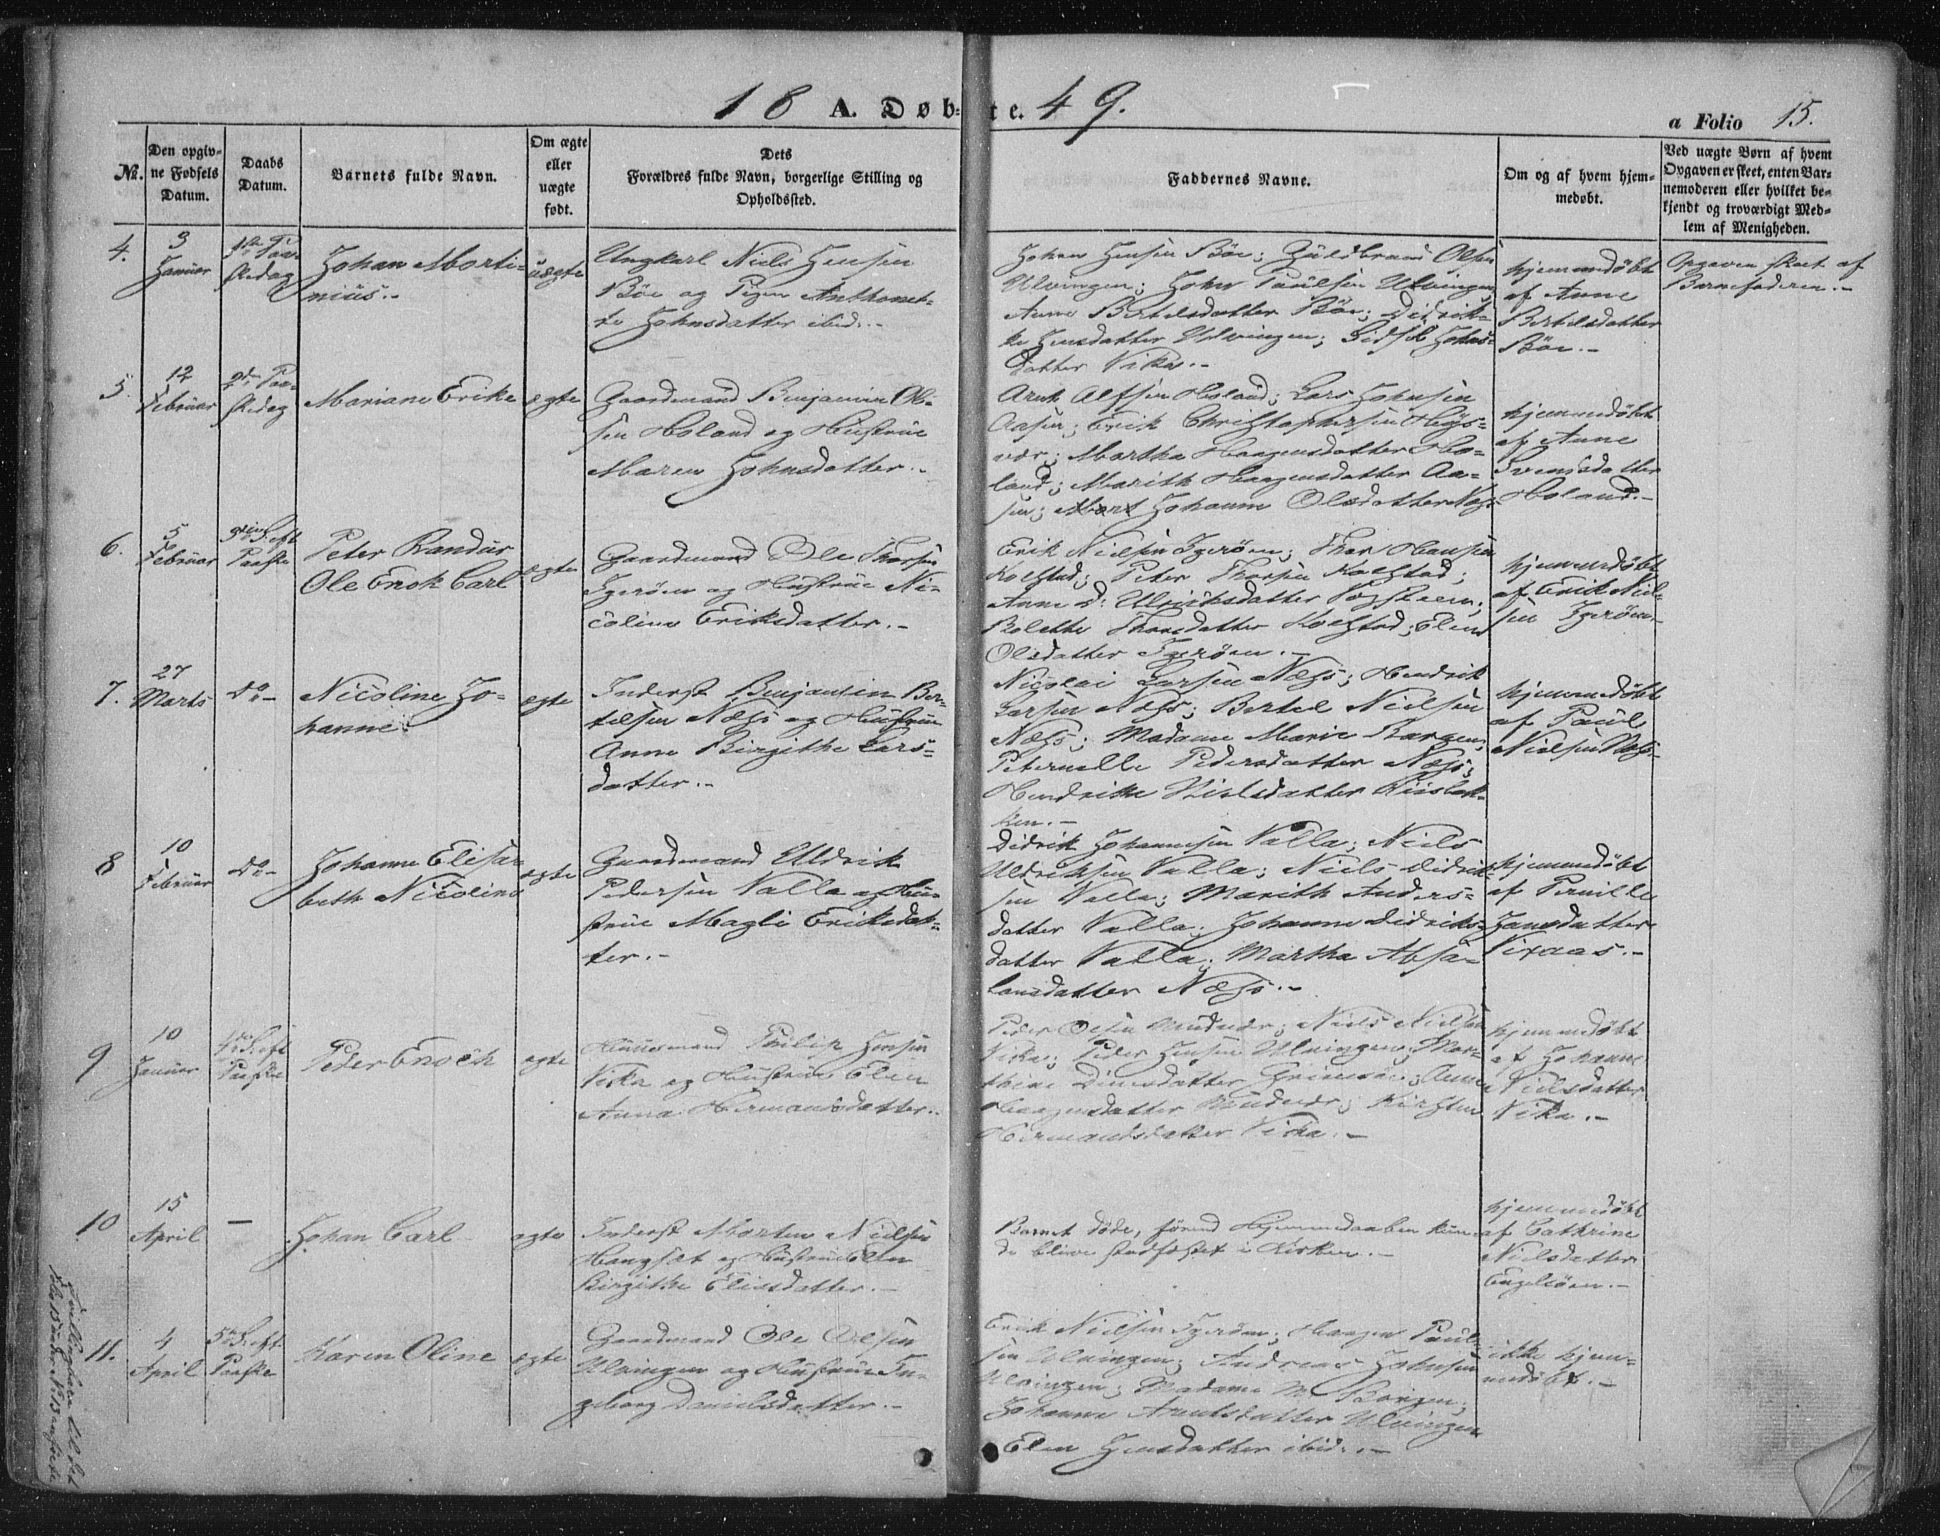 18 A. Døbte. 49.
a Folio 15.
No.
Den opgiv-
ne Fødsels
Datum.
Daabs
Datum.
Barnets fulde Navn.
Om ægte
eller
uægte
født.
Dets
Forældres fulde Navn, borgerlige Stilling og
Opholdssted.
Faddernes Navne.
Om og af hvem hjem-
medøbt.
Ved uægte Børn af hvem
Opgaven er skeet, enten Bar-
nemoderen eller hvilket be-
kjendt og troværdigt Med-
lem af Menigheden.
4.
3
Januar
1ste Paa-
skedag
Johan Morti-
nius.-
uægte
Ungkarl Niels Jensen
Böe og Pigen Anthonet-
te Johnsdatter ibid.-
Johan Jensen Böe; Guldbrand Olsen
Ulvingen; John Paulsen Ulvingen
Anne Bertelsdatter Böe; Didrik-
ke Jensdatter Ulvingen; Sidsel Johns-
datter Vika.-
hjemmedøbt
af Anne
Bertelsdatter
Böe.-
Opgaven skeet af
Barnefaderen.-
5.
12
Februar
2den Paa-
skedag
Mariane Erike
ægte
Gaardmand Benjamin Ol-
sen Holand og Hustrue
Maren Johnsdatter.-
Arnt Alfsen Holand; Lars Johnsen
Aasen; Erik Christophersen Høys-
vær; Martha Haagensdatter Ho-
land; Marith Haagensdatter Aa-
sen; Johanne Olsdatter Næss
hjemmedøbt
af Anne
Svensdatter
Holand.-
6.
5
Februar
3die S. eft.
Paaske
Peter Randur
Ole Enok Carl
ægte
Gaardmand Ole Thorsen
Igerøen og Hustrue Ni-
coline Eriksdatter.-
Erik Nielsen Igerøen; Thor Hansen
Kolstad; Peter Thorsen Kolstad;
Anne D: Ulriksdatter
Bolette Thorsdatter Kolstad; Elen
Olsdatter Igerøen.-
hjemmedøbt
af Erik Niel-
sen Igerøen.-
7.
27
Marts
do-
Nicoline Jo-
hanne
ægte
Inderst Benjamin Ber-
telsen Næss og Hustrue
Anne Birgithe Lars-
datter.-
Nicolai Larsen Næss; Hendrik
Larsen Næss; Bertel Nielsen
Næss; Madame Marie Borgen;
Peternelle Pedersdatter Næss;
Hendrikke Nielsdatter
ken.-
hjemmedøbt
af Paul
Nielsen Næss.-
8
10
Februar
do-
Johanne Elisa-
beth Nicoline
ægte
Gaardmand Uldrik
Pedersen Valla og Hu-
strue Magli Eriksdat-
ter.-
Didrik Johannesen Valla; Niels
Uldriksen Valla; Niels Didrik-
sen Valla; Marith Anders-
datter Valla; Johanne Didriks-
datter Valla; Martha Absa-
lonsdatter Næss.-
hjemmedøbt
af Pernille
Jansdatter
Vixaas.-
9
10
Januar
4de S. eft.
Paaske
Peder Enoch
ægte
Huusmand Philip Jensen
Vika og Hustrue Elen
Anna Hermansdatter.-
Peder Olsen; Niels Nielsen
Vika; Peder Jensen Ulvingen; Mar-
thine Dinesdatter; Anne
Haagensdatter; Kirsten
Hermansdatter Vika.-
hjemmedøbt
af Johanne
Nielsdatter
Vika.-
10
15
April
—
Johan Carl
ægte
Inderst Morten Nielsen
Haugsæt og Hustrue Elen
Birgithe Eliasdatter.-
Barnet døde, førend Hjemmedaaben kun-
de blive stadfæstet i Kirken.-
hjemmedøbt
af Cathrine
Nielsdatter
Engelsøen.-
11.
4
April
5te S. eft.
Paaske
Karen Oline
ægte
Gaardmand Ole Olsen
Ulvingen og Hustrue In-
geborg Danielsdatter.-
Erik Nielsen Igerøen; Haagen Paul-
sen Ulvingen; Andreas Johnsen
Ulvingen; Madame M. Borgen;
Johanne Arntsdatter Ulvingen
Elen Jensdatter ibid.-
ikke hjem-
medøbt.-